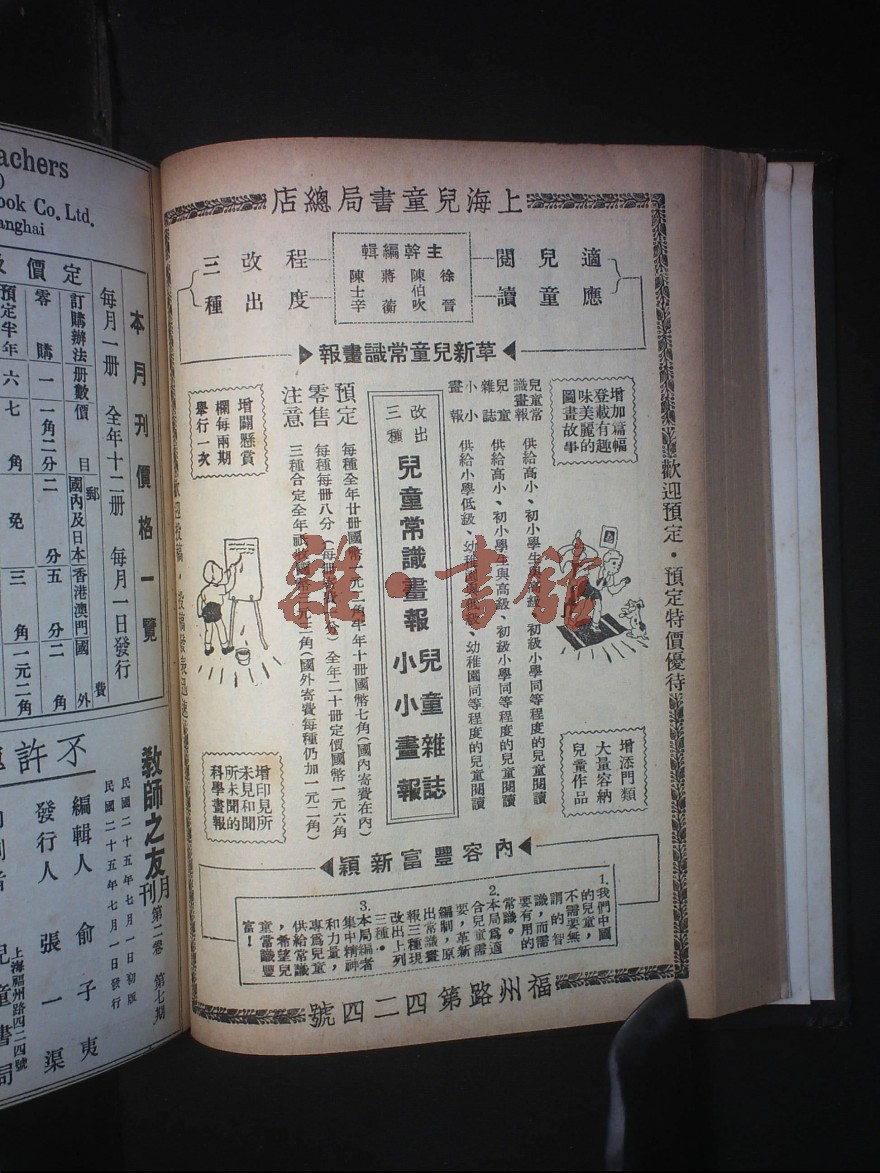 上海兒童書局總店
適應
兒童
閱讀
主幹編輯
徐晉
陳伯吹
蔣蘅
陳士辛
程度
改出
三種
革新兒童常識畫報
增加篇幅
登載有趣
味美麗的
圖畫故事
兒童常識畫報 供給高小、初小學生與高級、初級小學同等程度的兒童閱讀
兒童雜誌 供給高小、初小學生與高級、初級小學同等程度的兒童閱讀
小小畫報 供給小學低級、幼稚園與低級、幼稚園同等程度的兒童閱讀
改出三種
兒童常識畫報
兒童雜誌
小小畫報
預定 每種全年廿冊國幣一元二角半年十冊國幣七角(國內寄費在內)
零售 每種每冊八分 全年二十冊定價國幣一元六角
注意 三種合定全年祇收國幣 元三角(國外寄費每種仍加一元二角)
增闢懸賞
欄每兩期
舉行一次
增添門類
大量容納
兒童作品
增印見所
未見和聞
所未聞的
科學畫報
內容豐富新穎
1.我們中國
的兒童,
不需要無
謂的智
識,而需
要有用的
常識。
2.本局爲適
合兒童需
要,革新
編制,原
出常識畫
報三種現
改出上列
三種。
3.本局編者
集中精神
和力量,
專爲兒童
供給常識
,希望兒
童常識豐
富!
福州路第四二四號
歡迎預定・預定特價優待
歡迎投稿・投稿發表迅速
achers
)
ook Co. Ltd.
anghai
本月刊價格一覽
每月一册 全年十二册 每月一日發行
定價
訂購辦法 册數 價目 郵費
國內及日本 香港澳門 國外
零購 一 一角二分 二分 五分 二角
預定半年 六 七角 免 三角 一元二角
不許
教師之友月刊 第二卷 第七期
民國二十五年七月一日初版
民國二十五年七月一日發行
編輯人 俞子夷
發行人 張一渠
上海福州路四二四號
兒童書局
雜・書館